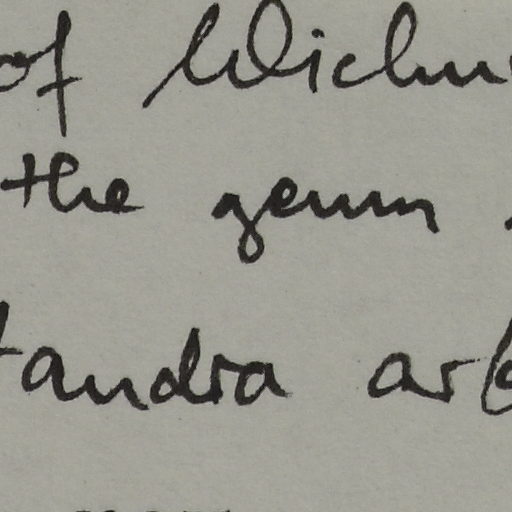 of Wichu
the genus
tandra arb